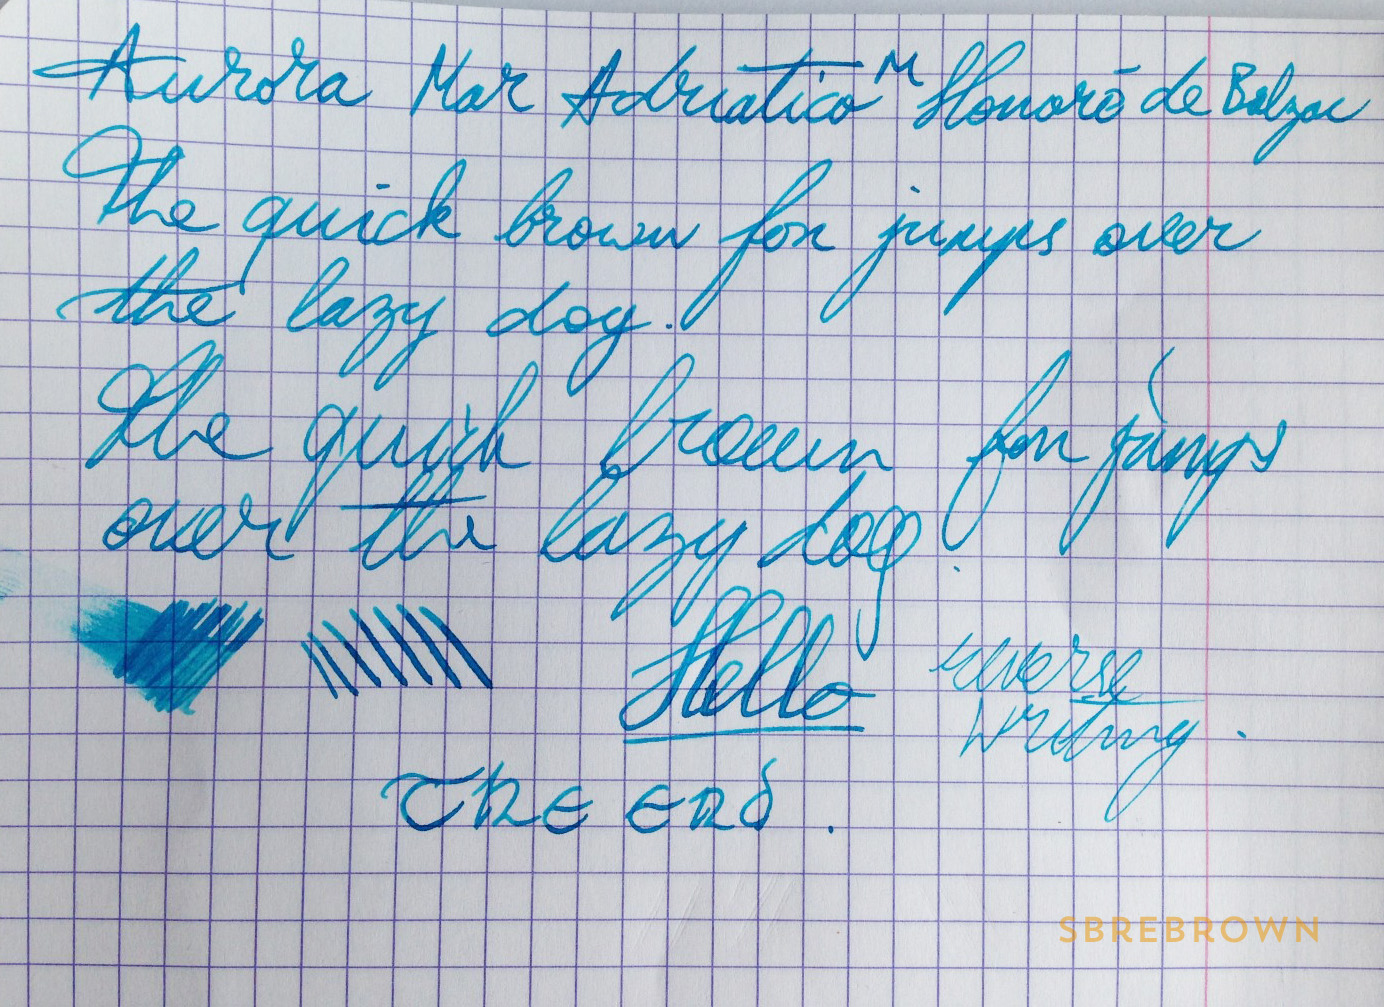 Aurora Mar Adriatico M Honoré de Balzac
The quick brown fox jumps over
the lazy dog.
The quick brown fox jumps
over the lazy dog.
Hello
reverse
writing.
THE END.
SBREBROWN